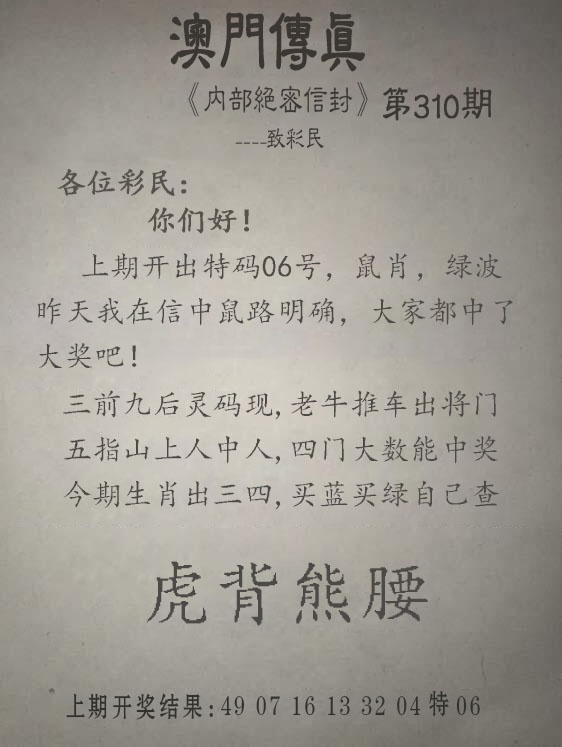 澳門傳眞
《内部絕密信封》第310期
----致彩民
各位彩民：
你们好！
上期开出特码06号，鼠肖，绿波
昨天我在信中鼠路明确，大家都中了
大奖吧！
三前九后灵码现,老牛推车出将门
五指山上人中人,四门大数能中奖
今期生肖出三四,买蓝买绿自己查
虎背熊腰
上期开奖结果:49 07 16 13 32 04特06